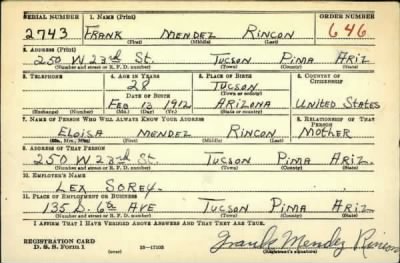 SERIAL NUMBER 1. NAME (Print) ORDER NUMBER
2743 FRANK MENDEZ RINCON 646
(First) (Middle) (Last)
2. ADDRESS (Print)
250 W 23rd St. Tucson Pima Ariz
(Number and street or R. F. D. number) (Town) (County) (State)
3. TELEPHONE 4. AGE IN YEARS 5. PLACE OF BIRTH 6. COUNTRY OF CITIZENSHIP
28 Tucson
(Town or county)
DATE OF BIRTH
Feb 13 1912 Arizona United States
(Exchange) (Number) (Mo.) (Day) (Yr.) (State or country)
7. NAME OF PERSON WHO WILL ALWAYS KNOW YOUR ADDRESS 8. RELATIONSHIP OF THAT PERSON
Eloisa Mendez Rincon Mother
(Mr., Mrs., Miss) (First) (Middle) (Last)
9. ADDRESS OF THAT PERSON
250 W 23rd St. Tucson Pima Ariz.
(Number and street or R. F. D. number) (Town) (County) (State)
10. EMPLOYER'S NAME
Lex Sorey.
11. PLACE OF EMPLOYMENT OR BUSINESS
135 S. 6th Ave Tucson Pima Ariz.
(Number and street or R. F. D. number) (Town) (County) (State)
I AFFIRM THAT I HAVE VERIFIED ABOVE ANSWERS AND THAT THEY ARE TRUE.
REGISTRATION CARD
D. S. S. Form 1 (over) 16—17105 Frank Mendez Rincon
(Registrant's signature)